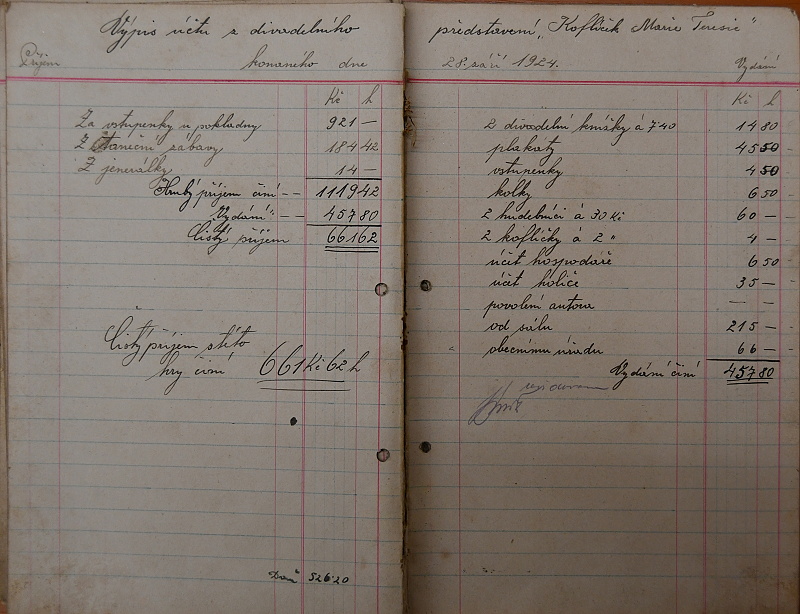 Výpis účtu z divadelního
Příjem konaného dne
Kč h
Za vstupenky u pokladny 921 —
Z taneční zábavy 184 42
Z jenerálky 14 —
Hrubý příjem činí -- 1119 42
Vydání -- 457 80
Čistý příjem 661 62
Čistý příjem s této
hry činí 661 Kč 62 h
526·20
představení „Koflíček Marie Teresie"
28. září 1924. Vydání
Kč h
2 divadelní knížky á 7·40 14 80
plakáty 45 50 —
vstupenky 4 50
kolky 6 50
2 hudebníci á 30 Kč 60 —
2 kofličky á 2 " 4 —
účet hospodáře 6 50 —
účet holiče 35 —
povolení autora — —
od sálu 215 —
obecnímu úřadu 66 —
Vydání činí 457 80
revidováno